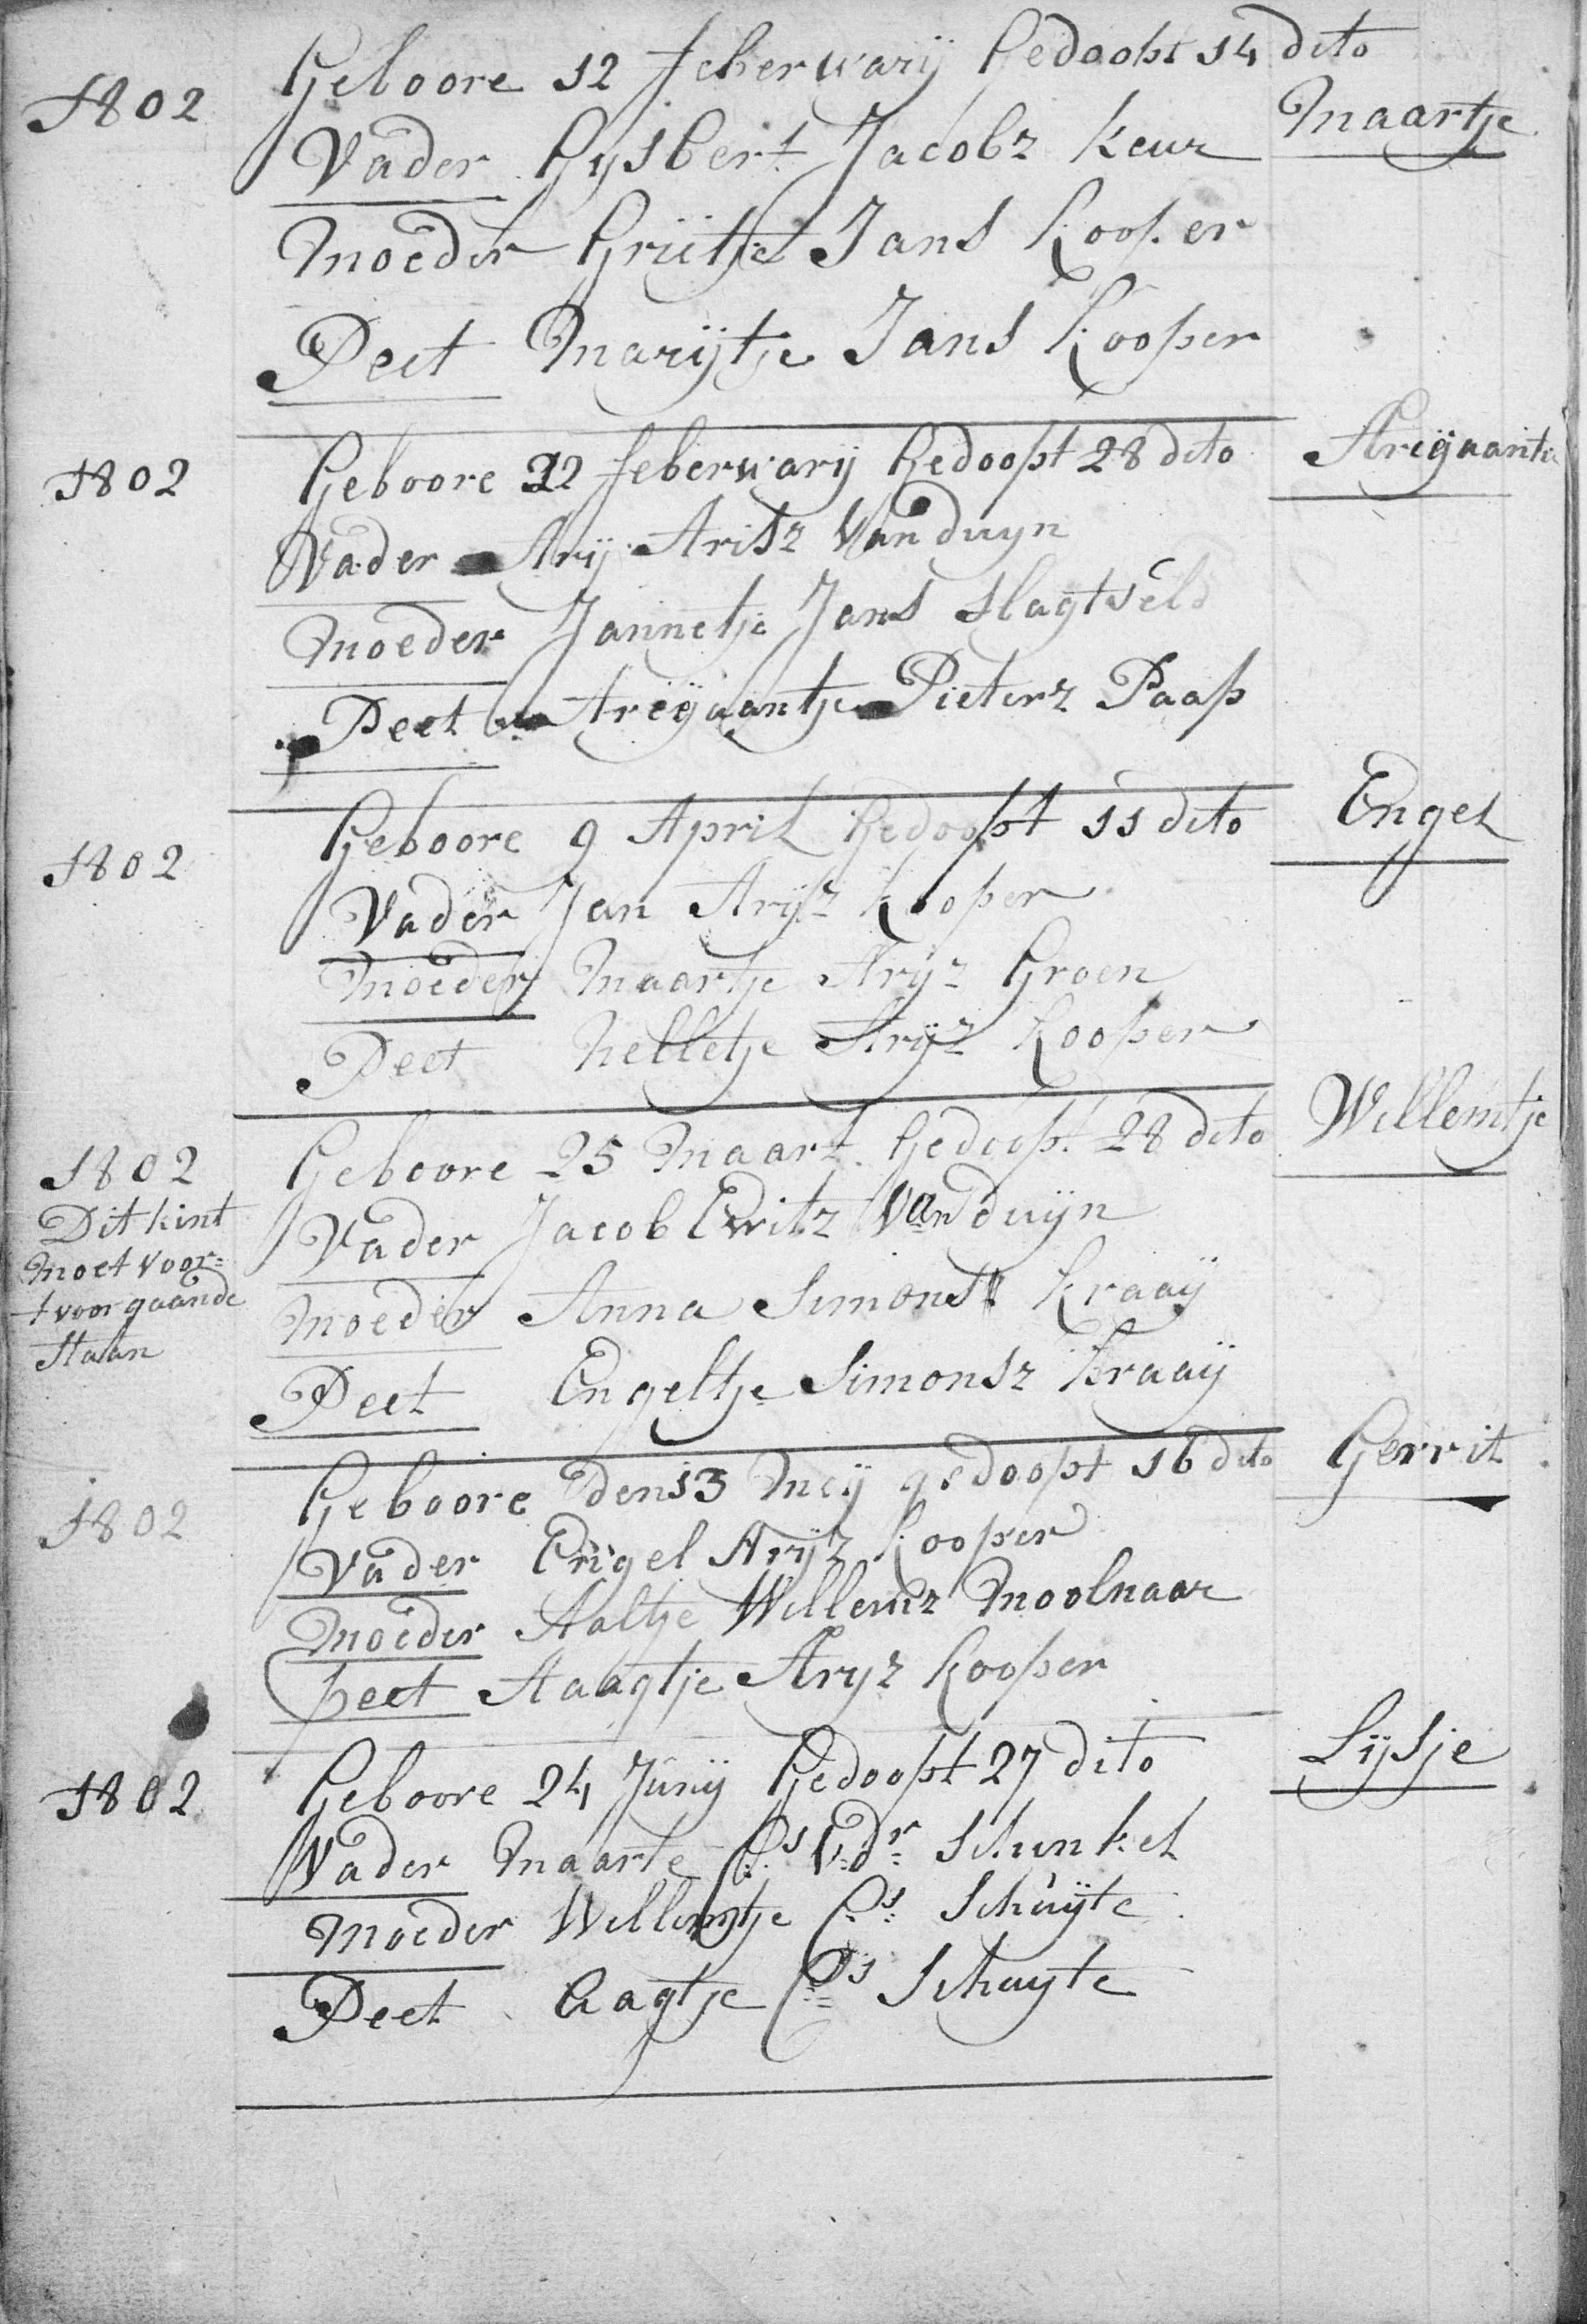 1802
Geboore 12 feberwarij Gedoopt 14 dito
Maartje
Vader Gysbert Jacobz keur
Moeder Grietje Jans Kooper
Peet Marijtje Jans Kooper
1802
Geboore 22 feberwarij Gedoopt 28 dito
Areyaantie
Vader Arij Arisz Van duyn
Moeder Jannetje Jans Slagtveld
Peet Areyaantje Pieterz Paap
1802
Geboore 9 April Gedoopt 11 dito
Engel
Vader Jan Arijz Kooper
Moeder Maartje Arijz Groen
Peet Nelletje Arijz Kooper
1802
Geboore 25 Maart Gedoopt 28 dito
Willemtje
Dit kint
moet voor=
t voorgaande
Staan
Vader Jacob Van duijn
Moeder Anna Simons Kraaij
Peet Engeltje Simonsz Kraaij
1802
Geboore den 13 Meij gedoopt 16 dito
Gerrit
Vader Engel Arijz Kooper
Moeder Aaltje Willemz Moolnaar
peet Aaagtje Aryz Kooper
1802
Geboore 24 Junij Gedoopt 27 dito
Lijsje
Vader Maarte Cs V:dr Schinkel
Moeder Willemtje Cs Schuijte
Peet Aagtje Cs Schuyte